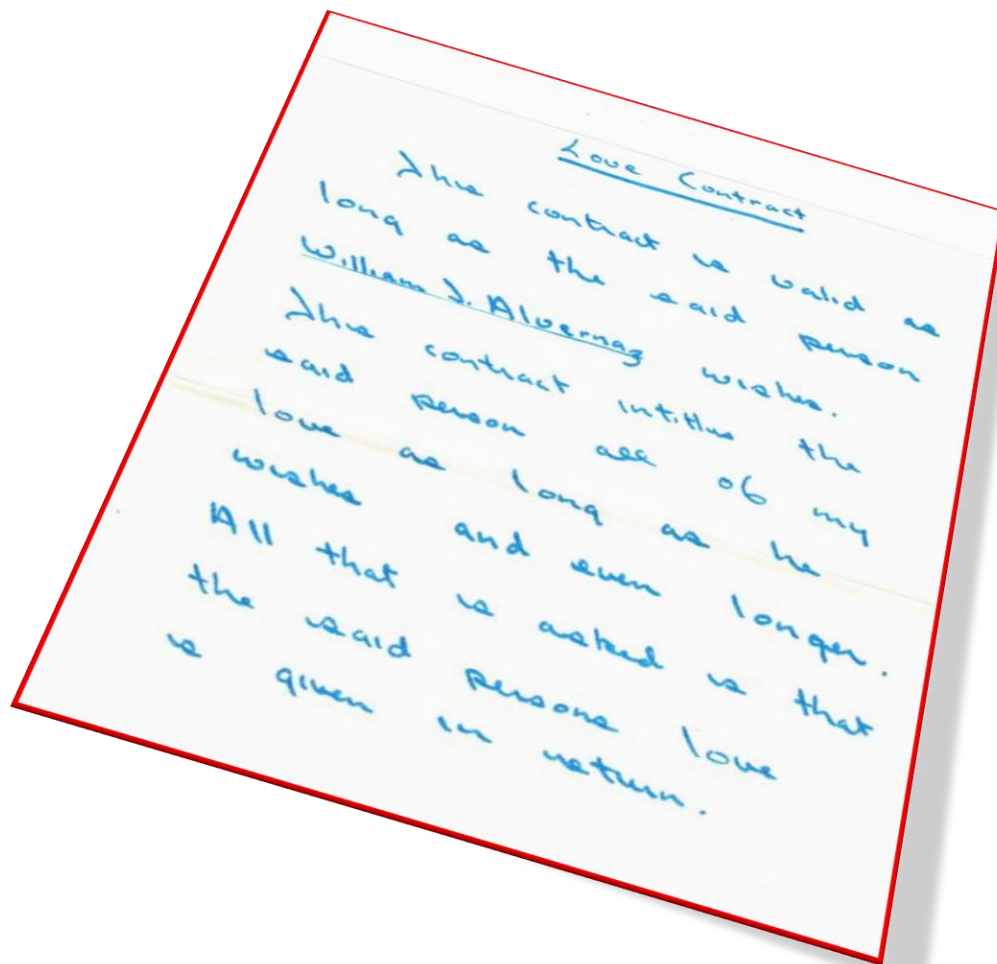 Love Contract
This contract is valid as
long as the said person
William J. Alvernaz wishes.
This contract intitles the
said person all of my
love as long as he
wishes and even longer.
All that is asked is that
the said persons love
is given in return.